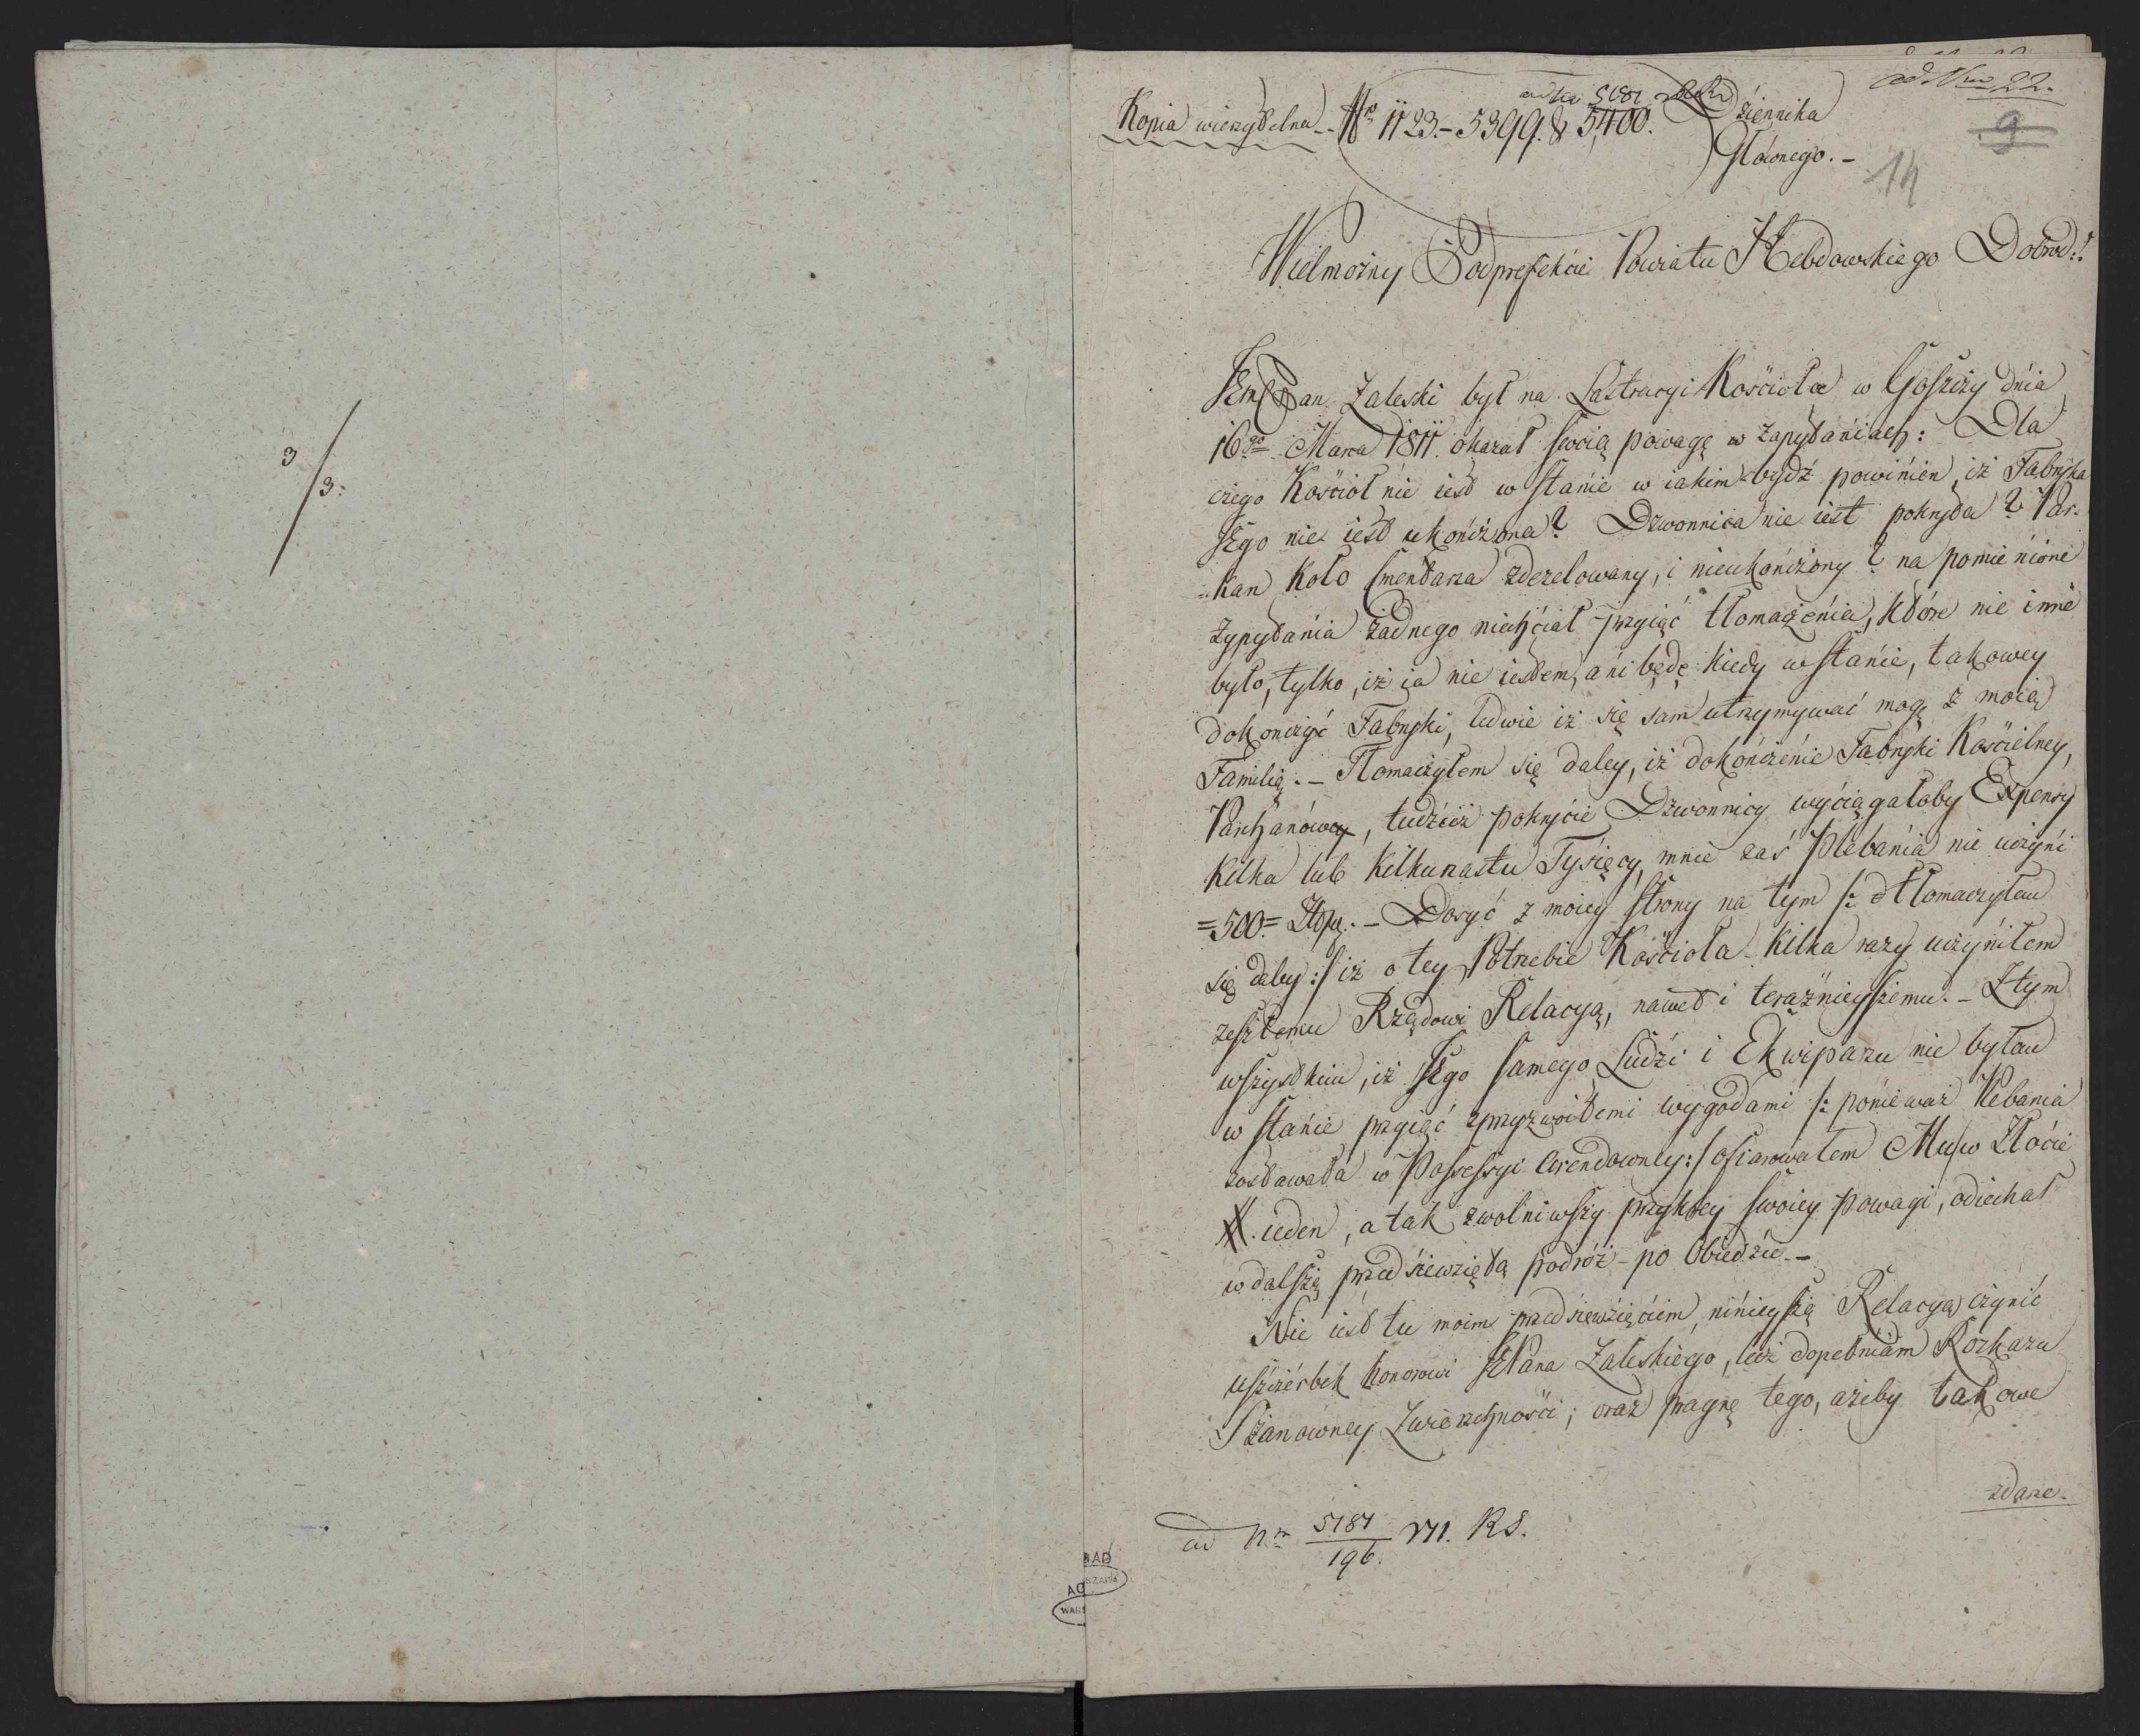 3/3:
ad Nrum 22.
9
14
Kopia wierzytelna - No 1123.- 5399. & 5,400. Dziennika
ad No 5181
Głównego. -
Wielmożny Podprefekcie Powiatu Hebdowskiego Dobrod:!
JEmć Pan Zaleski był na Lustracyi Kościoła w Goszczy dnia
16go Marca 1811. okazał swoią powagę w zapytaniach: Dla
czego Kościoł nie iest w stanie w iakim bydź powinien, iż Fabryka
Jego nie iest ukończona? Dzwonnica nie iest pokryta? Par-
kan koło Smentarza zdezelowany, i nieukończony? na pomienione
zypytania żadnego niechciał przyiąć tłomaczenia, które nie inne
było, tylko, iż ia nie iestem, ani będę kiedy w stanie, takowey
dokończyć Fabryki, ledwie iż się sam utrzymywać mogę z moią
Familią. - Tłomaczyłem się daley, iż dokończenie Fabryki Kościelney,
Parchanowey, tudzież pokrycie Dzwonnicy wyciągałoby Expensy
kilka lub kilkunastu Tysięcy, mnie zaś Plebania nie uczyni
=500= Złpo. - Dosyć z moiey strony na tym /: tłomaczyłem
się daley :/ iż o tey Potrzebie Kościoła kilka razy uczyniłem
zeszłemu Rządowi Relacyą, nawet i teraźnieyszemu. - Z tym
wszystkim, iż Jego samego Ludzi i Ekwipażu nie byłem
w stanie przyiąć zprzyzwoitemi wygodami /: ponieważ Plebania
zostawała w Possessyi Arendowney :/ ofiarowałem Mu w Złocie
#. ieden, a tak zwolniwszy przykrey swoiey powagi, odiechał
w dalszą przedsiewziętą podróż - po Obiedzie. -
Nie iest tu moim przedsiewzięciem, ninieyszą Relacyą czynić
uszczerbek honorowi JPana Zaleskiego, lecz dopełniam Rozkazu
Szanowney Zwierzchności; oraz pragnę tego, ażeby takowe
zdarze-
ad Nm 5181/196. VII. RS.
BAD
AG
SZAWA
WARS